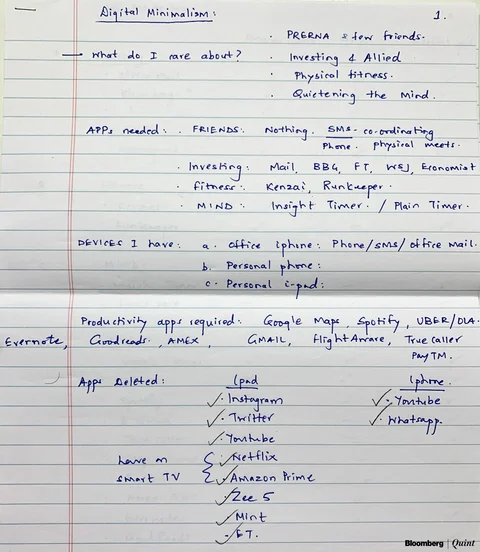 Digital Minimalism: 1.
. PRERNA & few friends.
— What do I care about? . Investing & Allied
. Physical fitness.
. Quietening the Mind.
APPs needed: . FRIENDS: Nothing. SMS - co-ordinating
Phone. physical meets.
. Investing: Mail, BBG, FT, WSJ, Economist
. Fitness: Kenzai, Runkeeper.
. MIND: Insight Timer. / Plain Timer.
DEVICES I have: a. Office iphone: Phone/SMS/office Mail.
b. Personal phone:
c. Personal i-pad:
Productivity apps required: Google Maps, Spotify, UBER/OLA.
Evernote, Goodreads, AMEX, GMAIL, FlightAware, True caller
PayTM.
Apps Deleted: Ipad Iphone.
✓. Instagram ✓. Youtube
✓. Twitter ✓. Whatsapp.
✓. Youtube
have on { ✓. Netflix
smart TV ✓. Amazon Prime
✓. Zee 5
✓. Mint
✓. ET.
Bloomberg | Quint